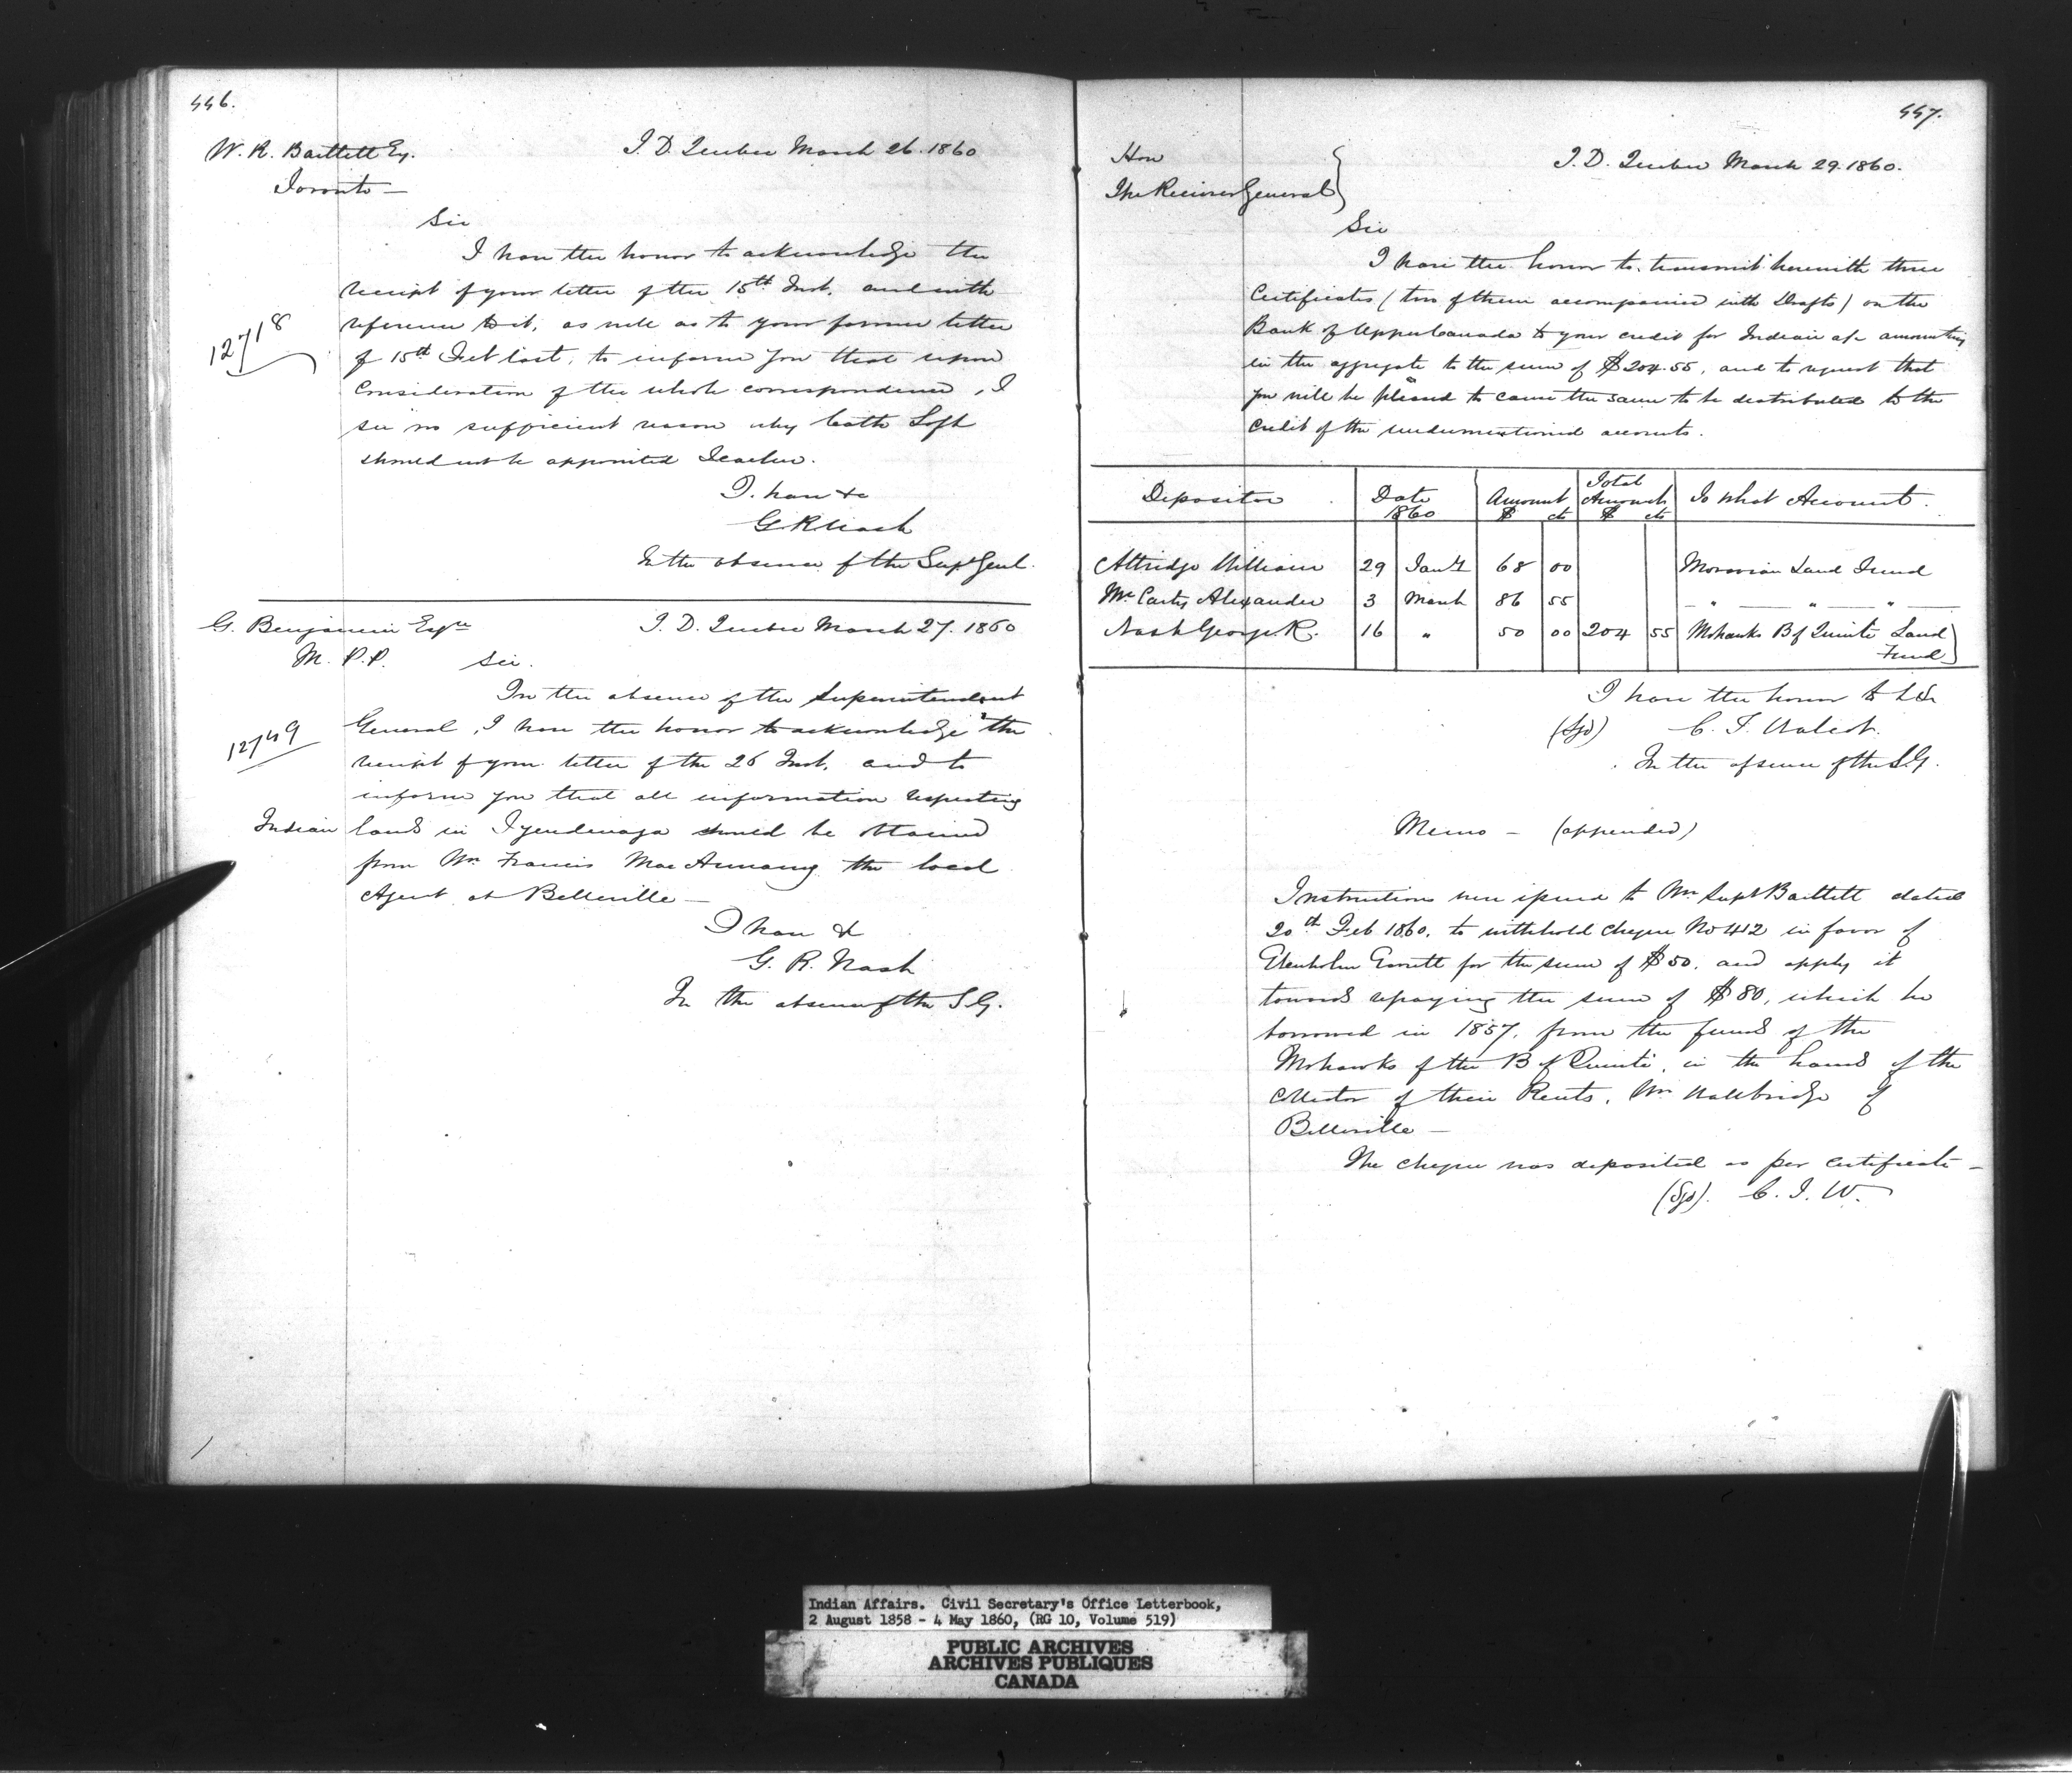 446.
W. R. Bartlett Esq.
Toronto —
I. D. Quebec March 26. 1860
Sir
I have the honor to acknowledge the
receipt of your letter of the 15th Inst. and with
reference to it, as well as to your former letter
12718
of 15th Feb last, to inform you that upon
consideration of the whole correspondence, I
see no sufficient reason why Loft
should not be appointed Teacher.
I. have &c
G R Nash
In the absence of the Supt Genl.
G. Benjamin Esqre
M. P. P.
I. D. Quebec March 27. 1860
Sir.
In the absence of the Superintendent
General, I have the honor to acknowledge the
12749
receipt of your letter of the 26 Inst. and to
inform you that all information respecting
Indian lands in Tyendinaga should be obtained
from Mr. Francis MacAnnany the local
Agent at Belleville —
I have &
G. R. Nash
In the absence of the S. G.
447.
Hon
The Receiver General
I. D. Quebec March 29. 1860.
Sir
I have the honor to transmit herewith three
Certificates (two of them accompanied with Drafts) on the
Bank of Upper Canada to your credit for Indian a/c amounting
in the aggregate to the sum of $204.55, and to request that
you will be pleased to cause the same to be distributed to the
credit of the undermentioned accounts.
Depositor Date 1860 Amount $ cts Total Amount $ cts To what Account.
Attridge William 29 Jany 68 00 Moravian Land Fund
McCarty Alexander 3 March 86 55 — " — " — " —
Nash George R. 16 " 50 00 204 55 Mohawks B of Quinté Land
Fund
I have the honor to be &c
(Sgd) C. T. Walcot.
In the absence of the S. G.
Memo — (appended)
Instructions were issued to Mr. Supt Bartlett dated
20th Feb 1860. to withhold cheque No 412 in favor of
for the sum of $50. and apply it
towards repaying the sum of $80, which he
borrowed in 1857. from the funds of the
Mohawks of the B of Quinté, in the hands of the
Collector of their Rents, Mr Wallbridge of
Belleville —
The cheque was deposited as per certificate —
(Sgd). C. T. W.
Indian Affairs. Civil Secretary's Office Letterbook,
2 August 1858 - 4 May 1860, (RG 10, Volume 519)
PUBLIC ARCHIVES
ARCHIVES PUBLIQUES
CANADA